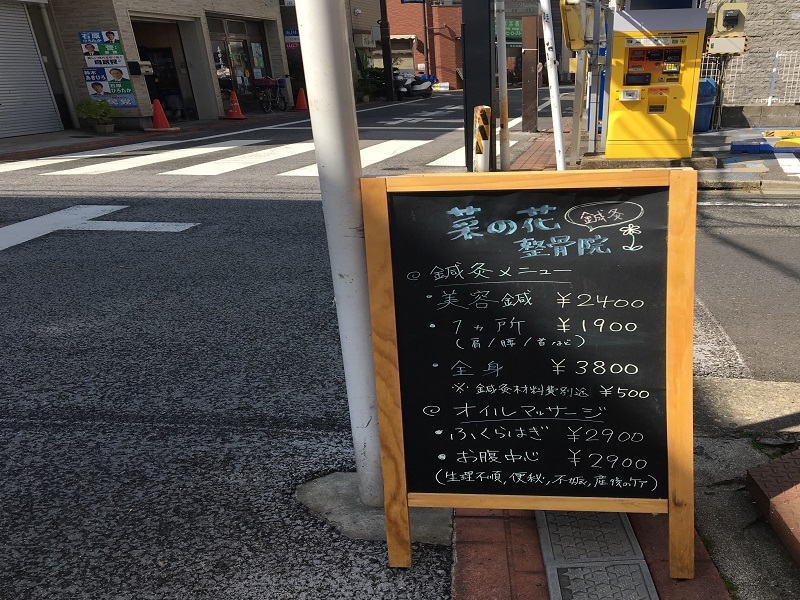 菜の花 鍼灸
整骨院
◎ 鍼灸メニュー
・美容鍼 ¥2400
・1ヵ所 ¥1900
(肩/腰/首など)
・全身 ¥3800
※ 鍼灸材料費別途 ¥500
◎ オイルマッサージ
・ふくらはぎ ¥2900
・お腹中心 ¥2900
(生理不順,便秘,不妊,産後のケア)